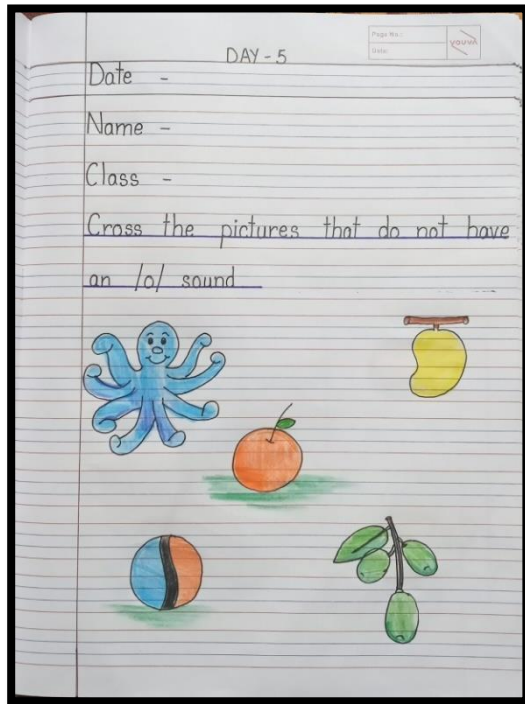 Page No.:
Date:
DAY - 5
Date -
Name -
Class -
Cross the pictures that do not have
an /o/ sound